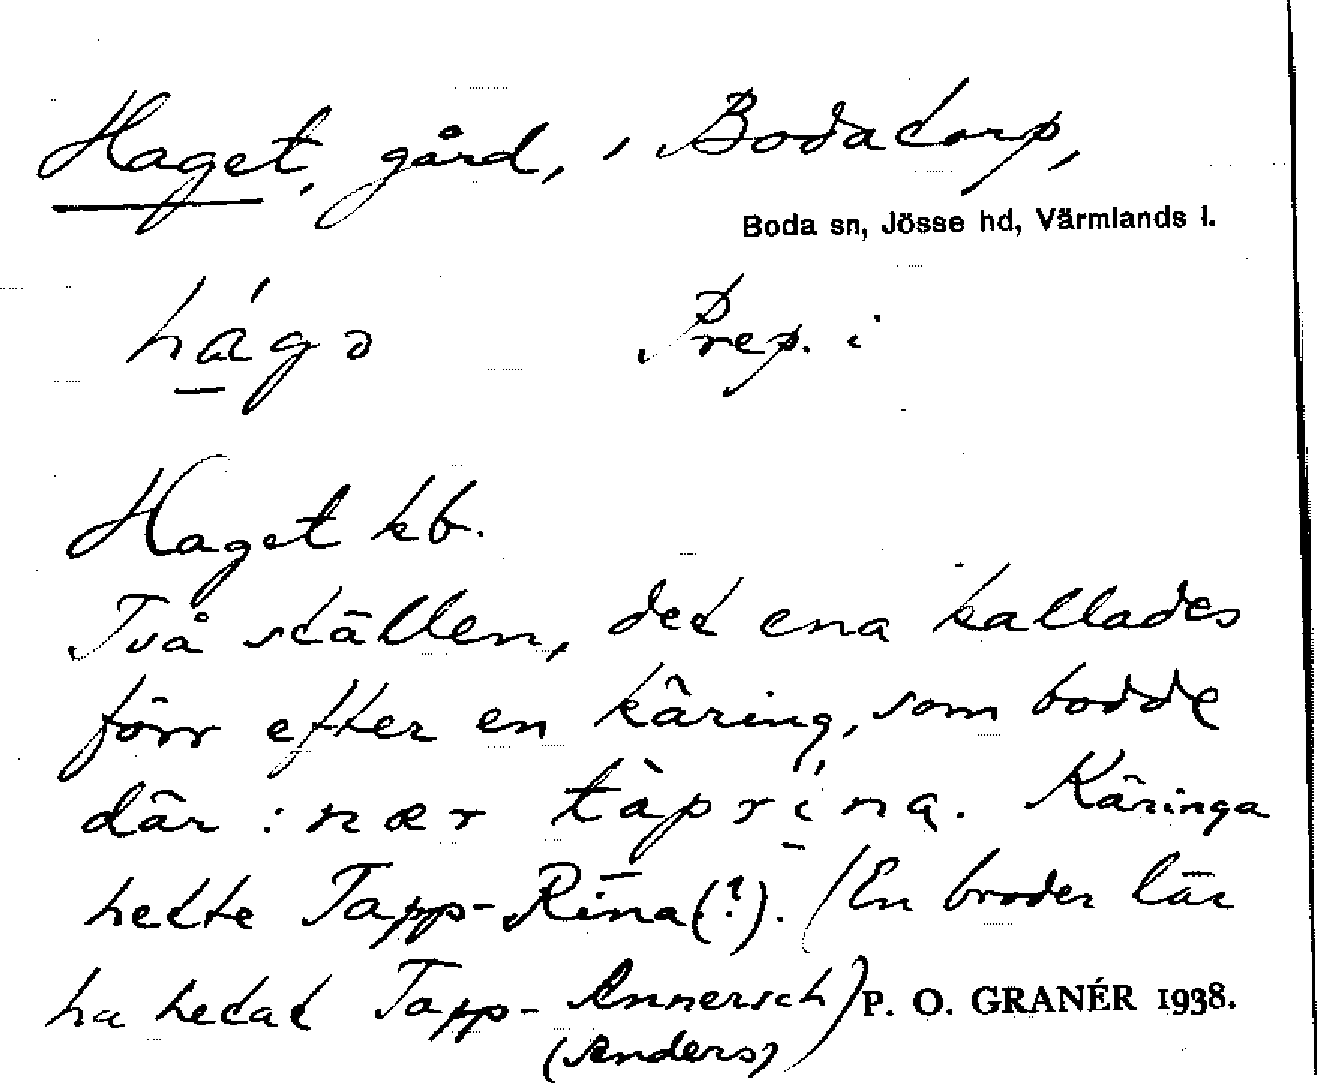 Haget, gård, i Bodatorp,
Boda sn, Jösse hd, Värmlands l.
hágə Prep. i
Haget kb.
Två ställen, det ena kallades
förr efter en käring, som bodde
där: nær tàprína. Käringa
hette Tapp-Rina(?). (En broder lär
ha hetat Tapp-Annersch)
(Anders)
P. O. GRANÉR 1938.